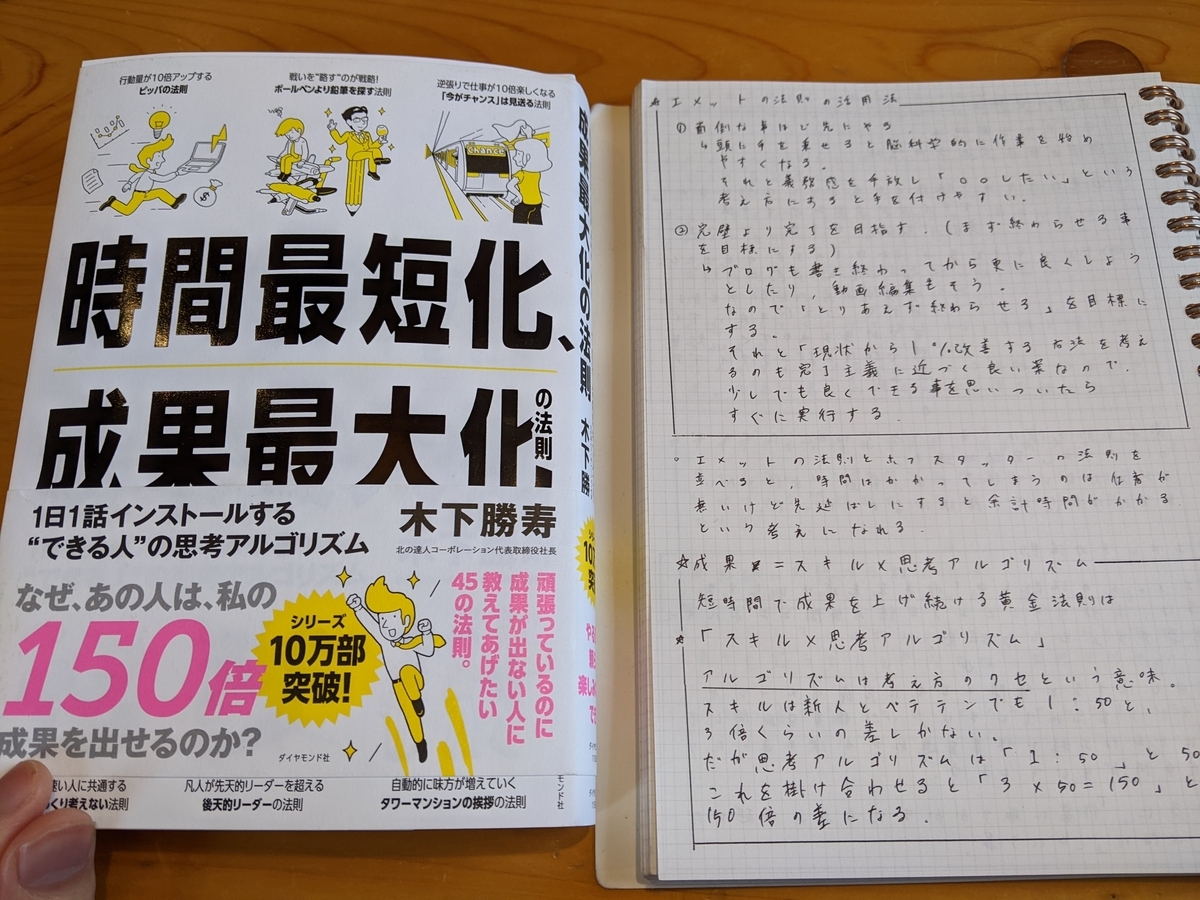 行動量が10倍アップする
ピッパの法則
戦いを“略す”のが戦略!
ボールペンより鉛筆を探す法則
逆張りで仕事が10倍楽しくなる
「今がチャンス」は見送る法則
chance
時間最短化、
成果最大化
の法則
1日1話インストールする
“できる人”の思考アルゴリズム
木下勝寿
北の達人コーポレーション代表取締役社長
なぜ、あの人は、私の
150倍
成果を出せるのか?
シリーズ
10万部
突破!
頑張っているのに
成果が出ない人に
教えてあげたい
45の法則。
ダイヤモンド社
い人に共通する
くり考えない法則
凡人が先天的リーダーを超える
後天的リーダーの法則
自動的に味方が増えていく
タワーマンションの挨拶の法則
成果最大化の法則
木下勝
モンド社
エメットの法則の活用法
① 面倒な事ほど先にやる
↳ 頭に手を乗せると脳科学的に作業を始め
やすくなる。
それと義務感を手放し「○○したい」という
考え方にあると手を付けやすい。
② 完璧より完了を目指す。(まず終わらせる事
を目標にする)
↳ ブログも書き終わってから更に良くしよう
としたり、動画編集もそう。
なので「とりあえず終わらせる」を目標に
する。
それと「現状から1%改善する方法を考え
るのも完了主義に近づく良い案なので、
少しでも良くできる事を思いついたら
すぐに実行する。
。エメットの法則とホフスタッターの法則を
並べると、時間はかかってしまうのは仕方が
無いけど先延ばしにすると余計時間がかかる
という考えになれる。
☆成果=スキル×思考アルゴリズム
短時間で成果を上げ続ける黄金法則は
★「スキル×思考アルゴリズム」
アルゴリズムは考え方のクセという意味。
スキルは新人とベテランでも1:50と、
3倍くらいの差しかない。
だが思考アルゴリズムは「1:50」と50
これを掛け合わせると「3×50=150」と
150倍の差になる。